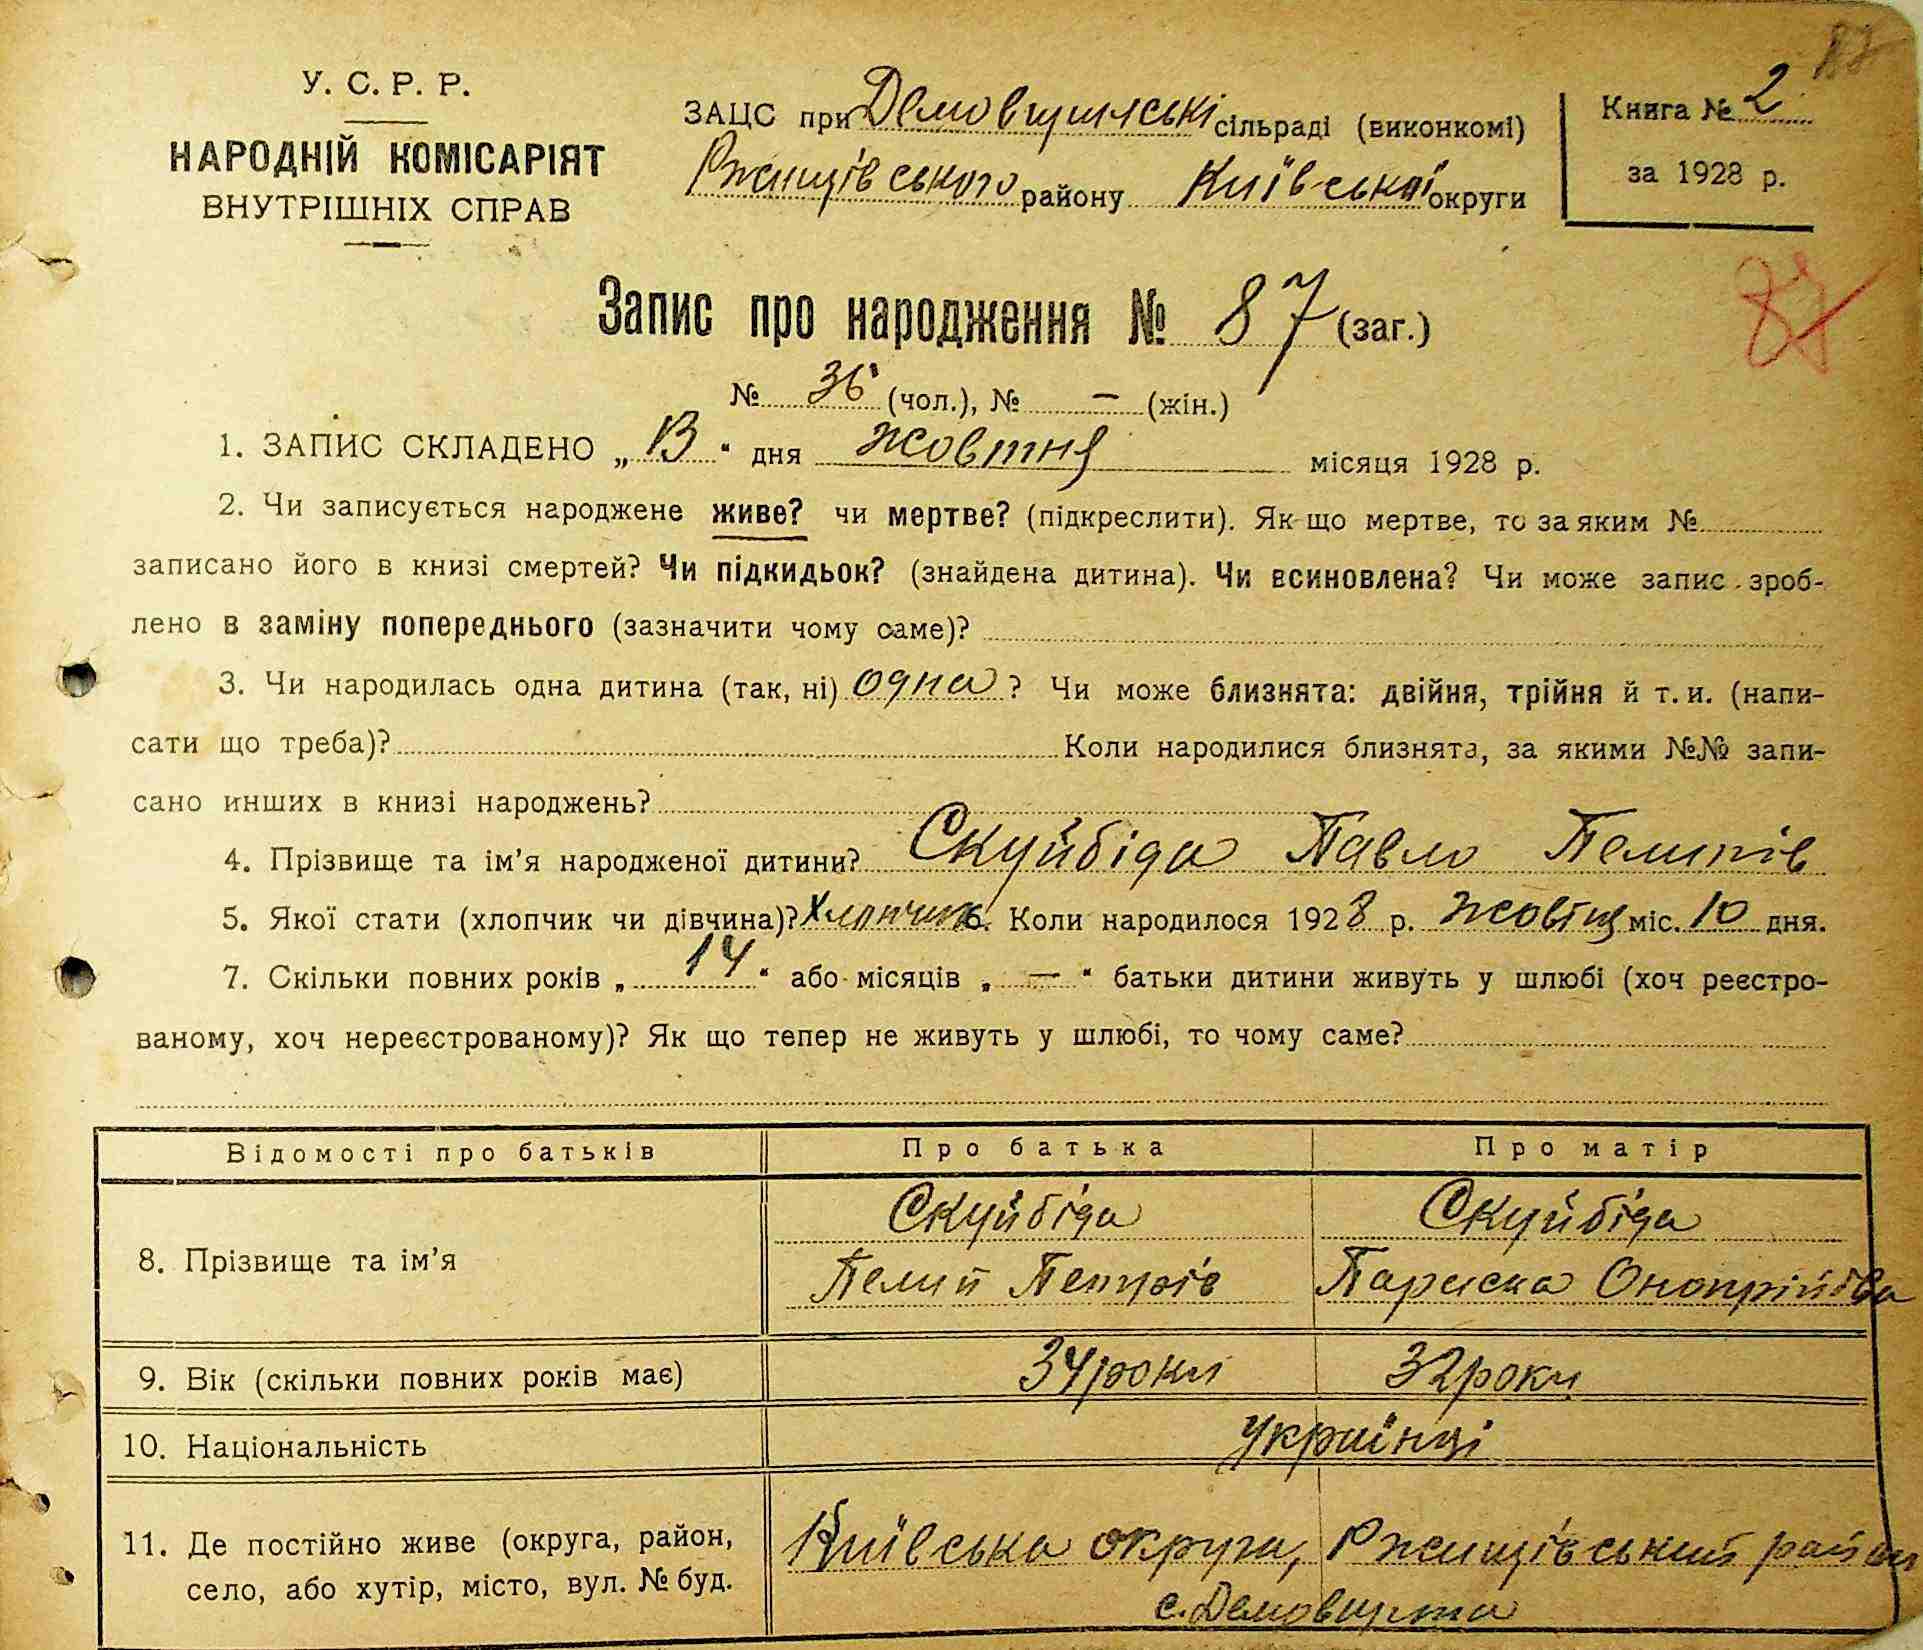 87
У. С. Р. Р.
НАРОДНІЙ КОМІСАРІЯТ
ВНУТРІШНІХ СПРАВ
ЗАЦС при сільраді (виконкомі)
Ржищівського району Київської округи
Книга № 2
за 1928 р.
Запис про народження № 87 (заг.)
87
№ 36 (чол.), № — (жін.)
1. ЗАПИС СКЛАДЕНО „ 13 “ дня жовтня місяця 1928 р.
2. Чи записується народжене живе? чи мертве? (підкреслити). Як-що мертве, то за яким №
записано його в книзі смертей? Чи підкидьок? (знайдена дитина). Чи всиновлена? Чи може запис зроб-
лено в заміну попереднього (зазначити чому саме)?
3. Чи народилась одна дитина (так, ні) одна ? Чи може близнята: двійня, трійня й т. и. (напи-
сати що треба)? Коли народилися близнята, за якими №№ запи-
сано инших в книзі народжень?
4. Прізвище та ім’я народженої дитини? Скуйбіда Павло Пелипів
5. Якої стати (хлопчик чи дівчина)? Хлопчик 6. Коли народилося 1928 р. жовтня міс. 10 дня.
7. Скільки повних років „ 14 “ або місяців „ — “ батьки дитини живуть у шлюбі (хоч реєстро-
ваному, хоч нереєстрованому)? Як що тепер не живуть у шлюбі, то чому саме?
Відомості про батьків Про батька Про матір
8. Прізвище та ім’я
Скуйбіда Скуйбіда
Параска Онопріївва
9. Вік (скільки повних років має) 34 роки 32 роки
10. Національність українці
11. Де постійно живе (округа, район,
село, або хутір, місто, вул. № буд.
Київська округа, Ржищівський район
с.